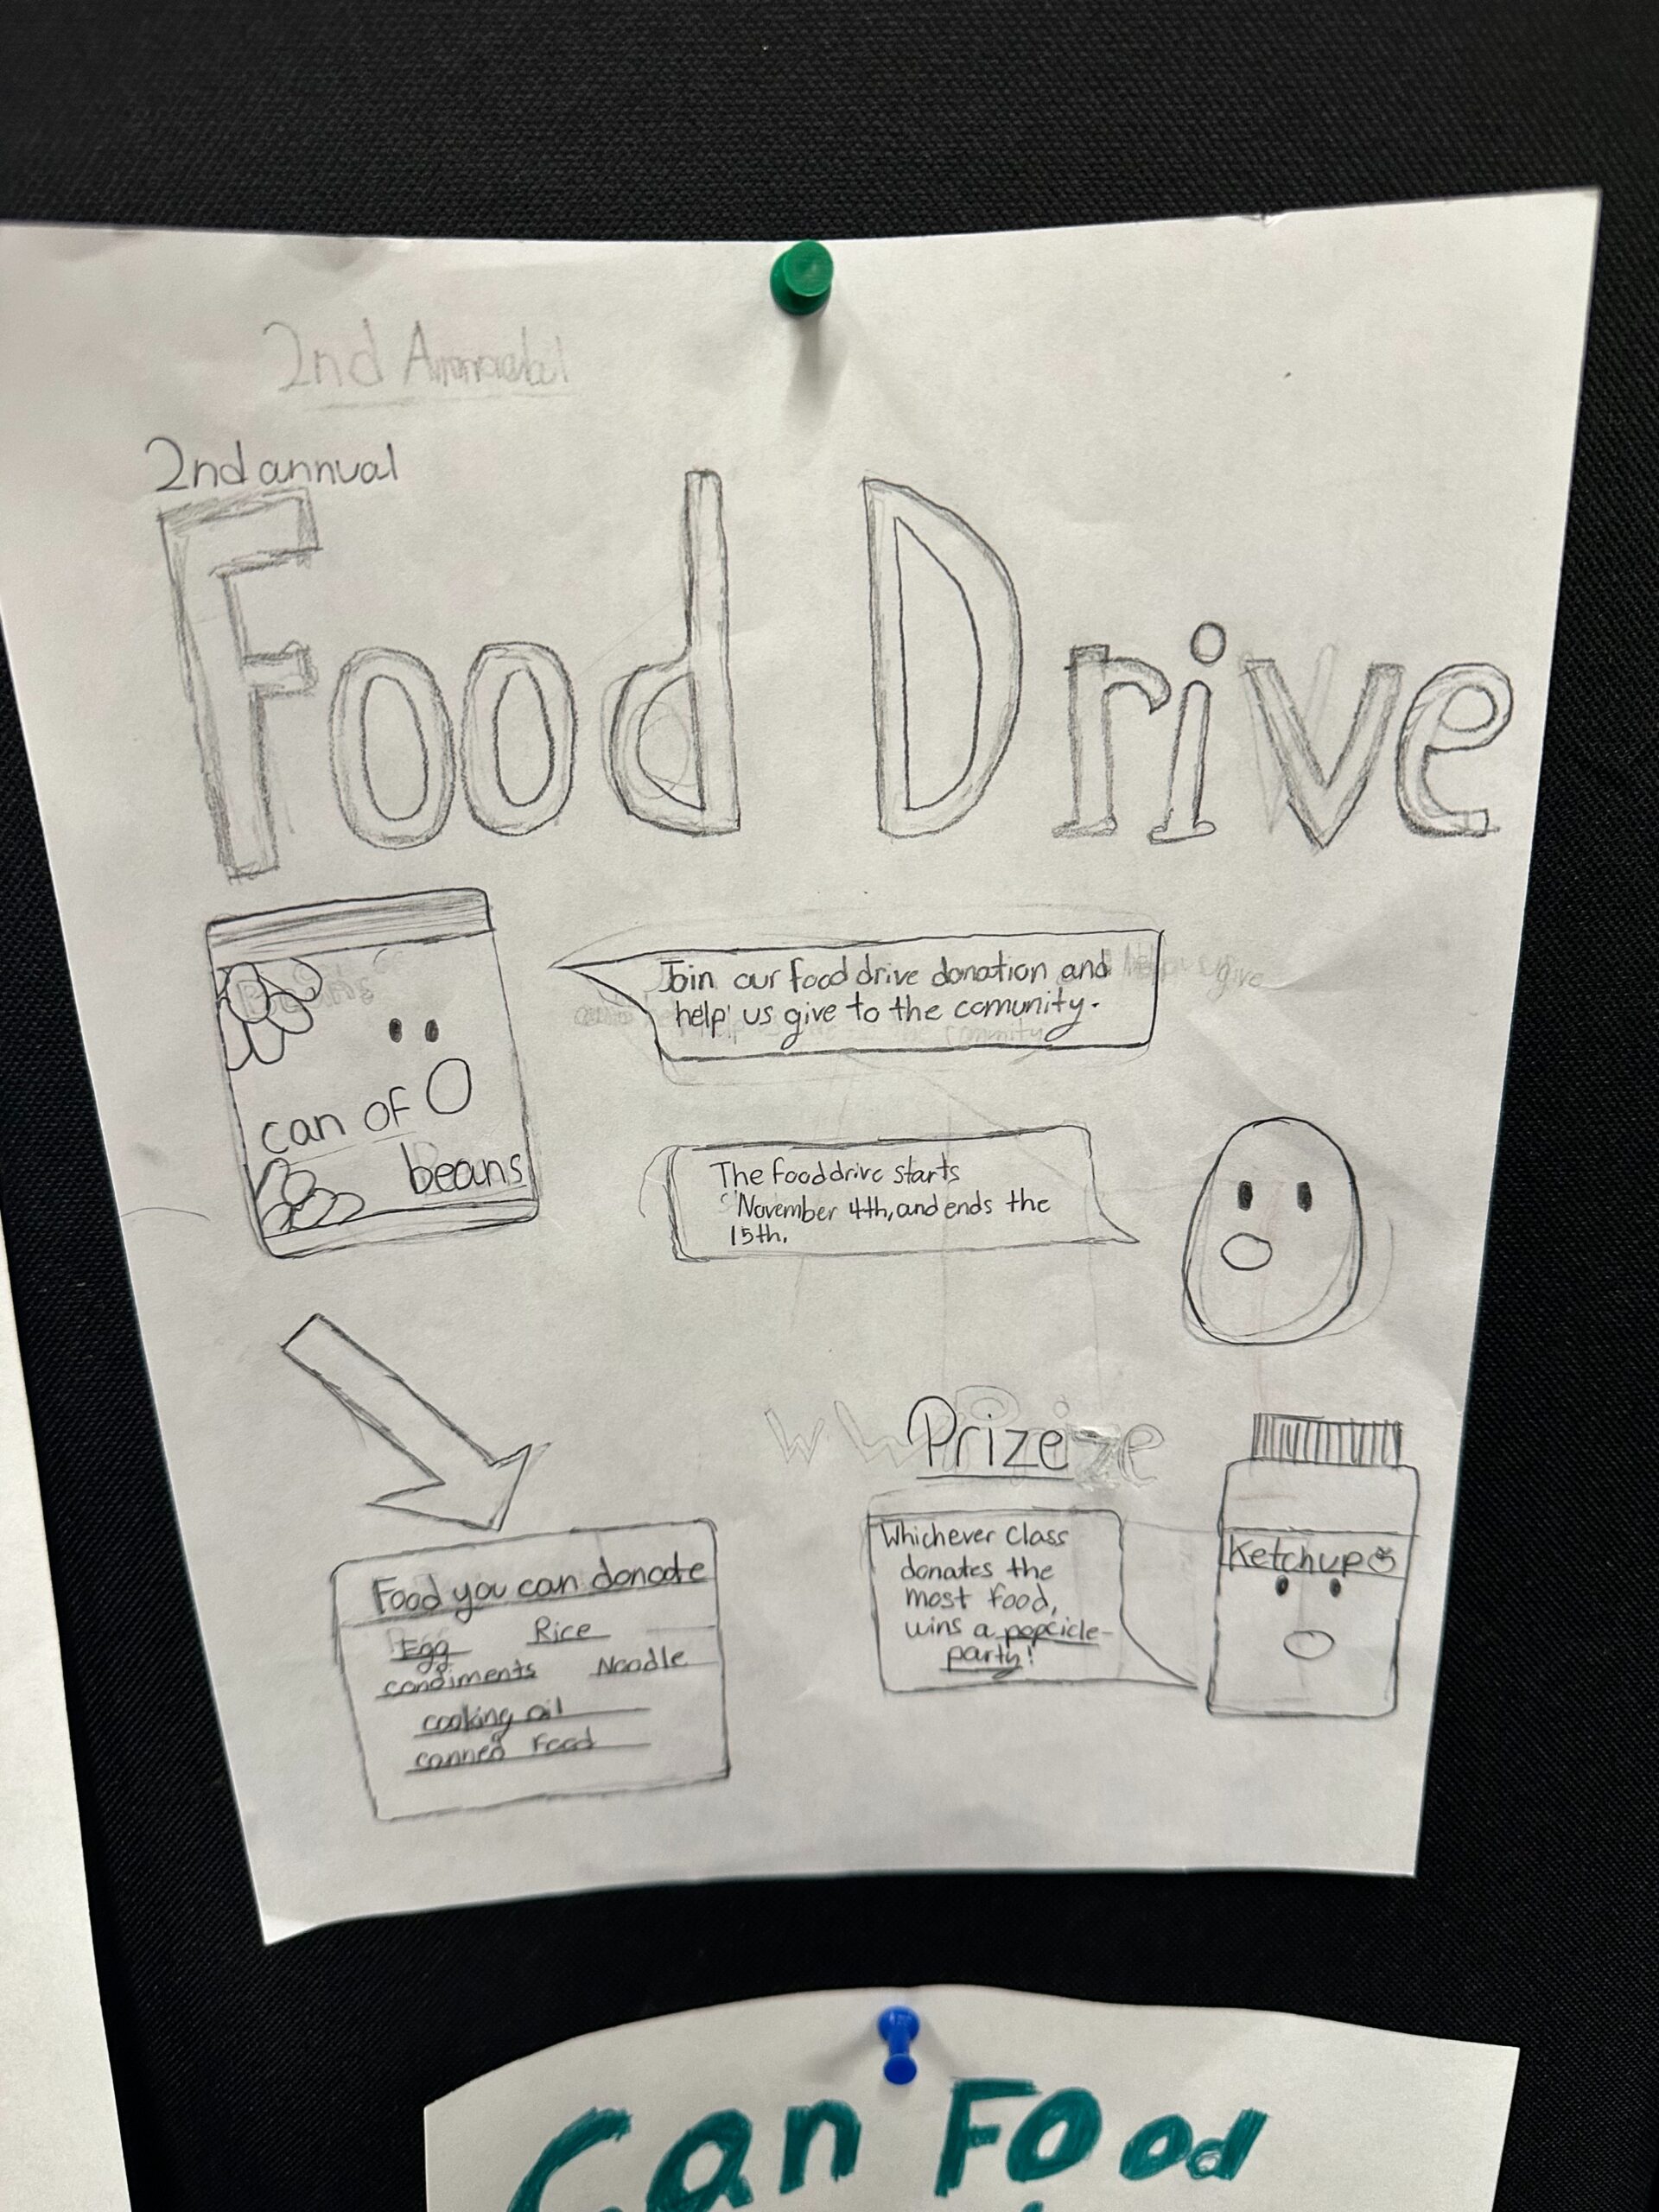 2nd annual
Food Drive
Join our food drive donation and
help us give to the comunity.
can of
beans
The food drive starts
November 4th, and ends the
15th.
Prize
Whichever class
donates the
most food,
wins a popcicle-
party!
Ketchup
Food you can donate
Egg Rice
condiments Noodle
cooking oil
canned food
Can Food